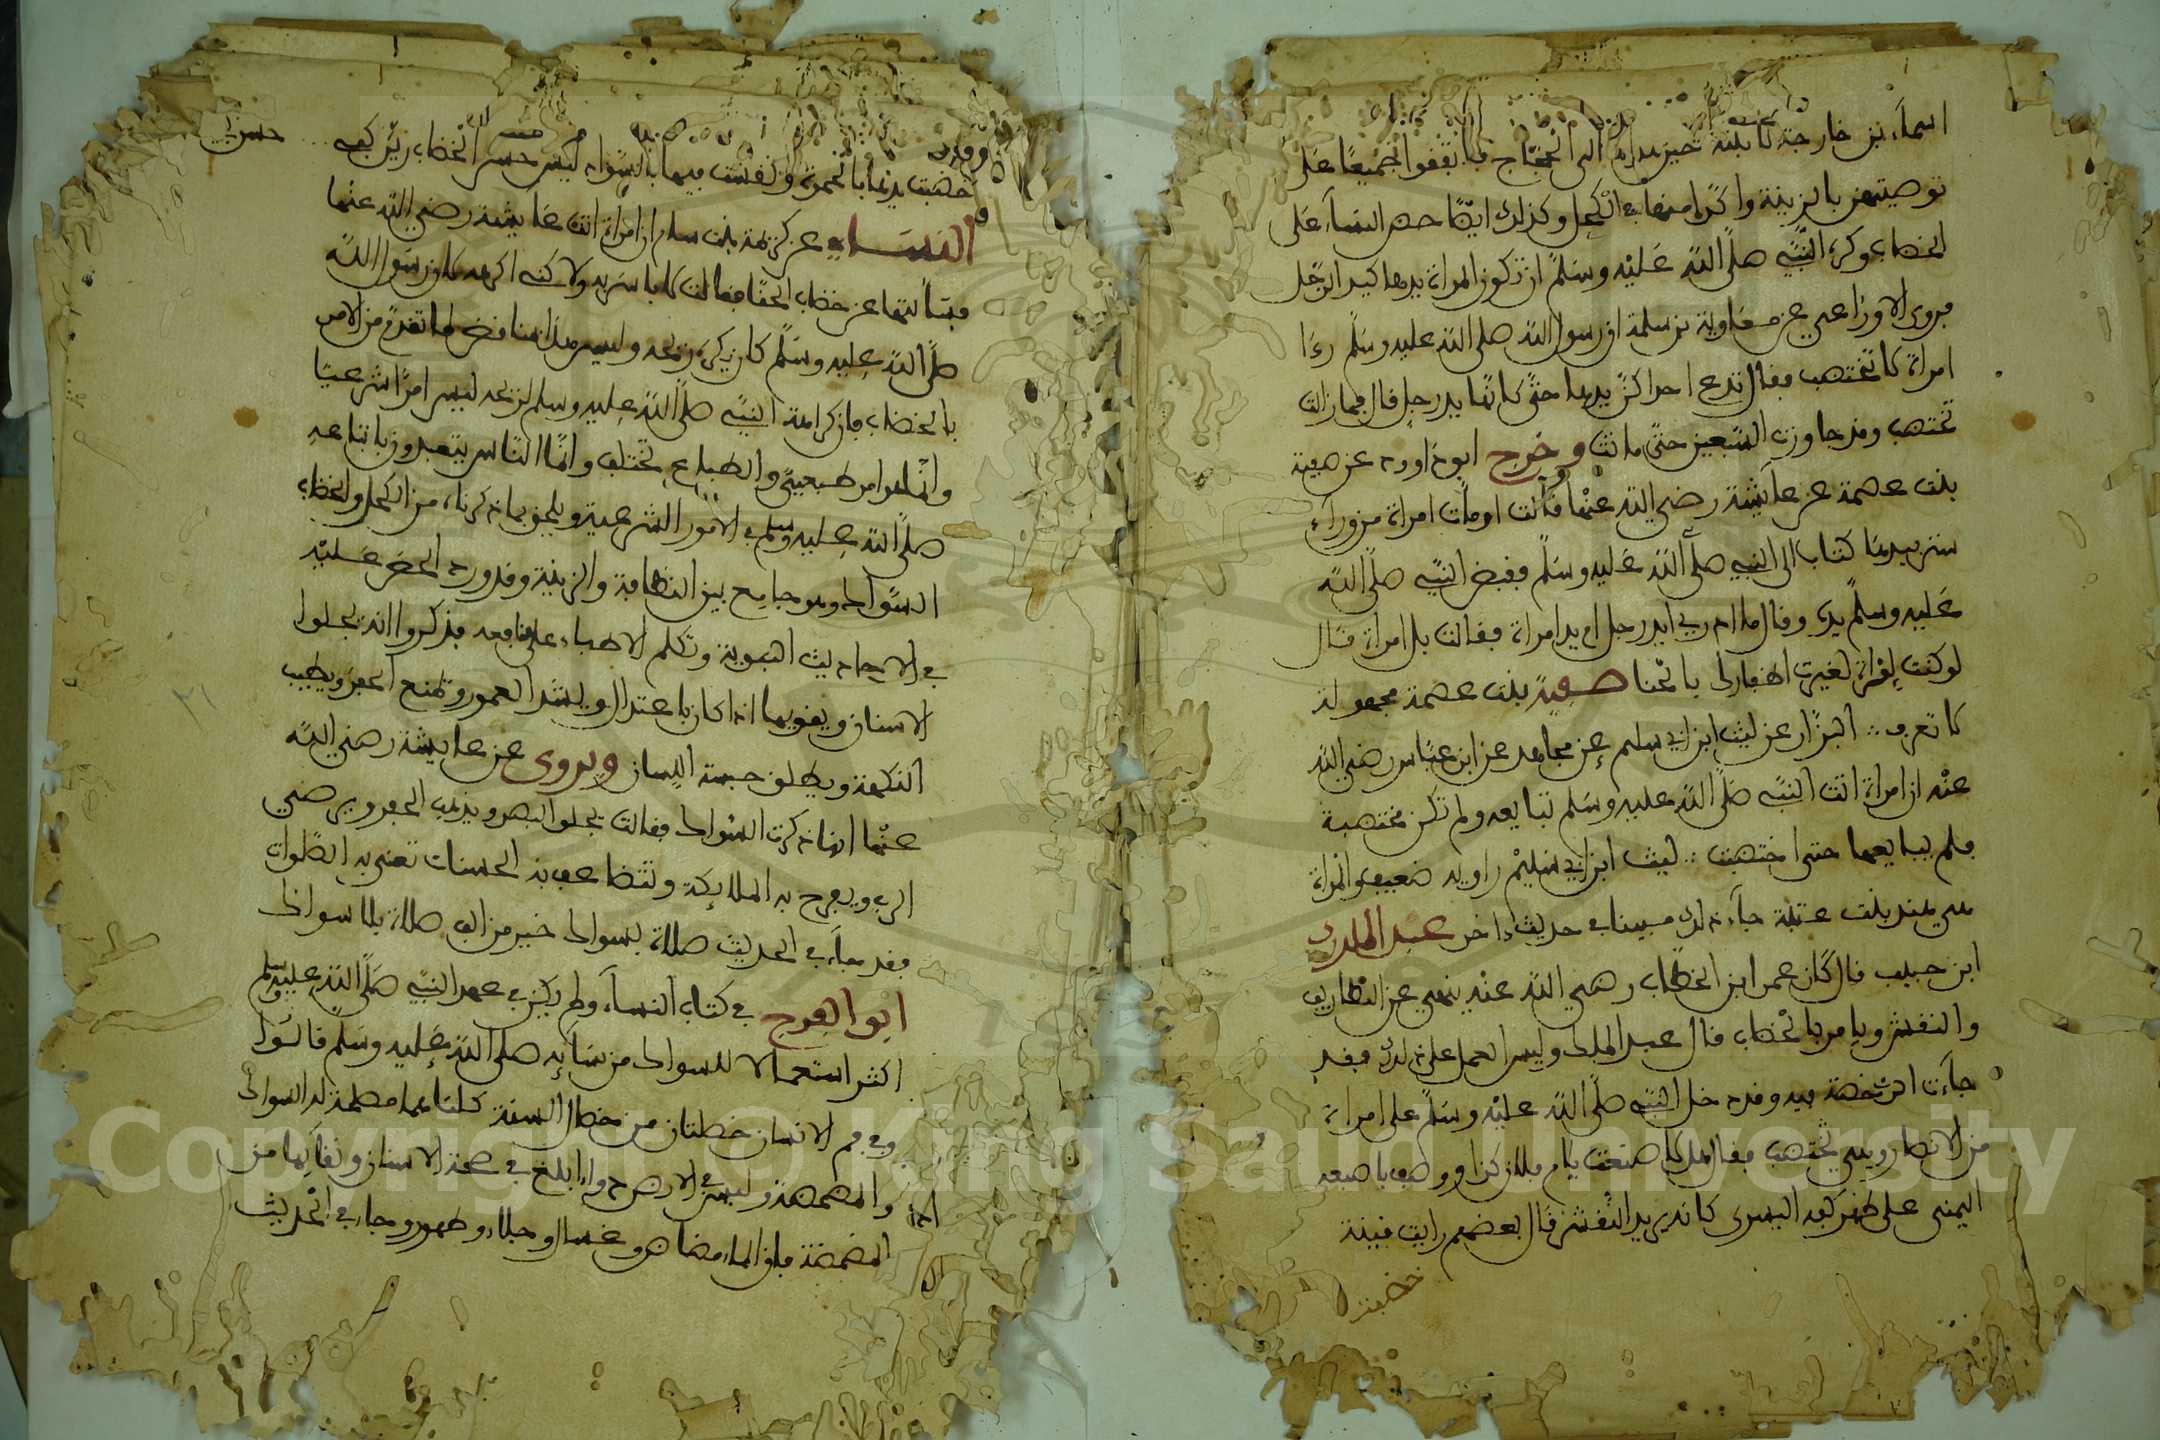 اسماء بن خارجة لابنته حين الى الحجاج فاتفقوا جميعا على
توصيتهن بالزينة واكدها في الكحل وكذلك ايضا حض النساء على
الخضاب وكره النبي صلى الله عليه وسلم ان تكون المراة يدها كيد الرجل
فروى الاوزاعي عن معاوية بن سلمة ان رسول الله صلى الله عليه وسلم رءا
امراة لا تختضب فقال تدع احداكن يدها حتى كانها يد رجل قال فما زالت
تختضب وقد جاوزت التسعين حتى ماتت وخرج ابو داوود عن صفية
بنت عصمة عن عايشة رضي الله عنها قالت اومات امراة من وراء
ستر بيدها كتاب الى النبي صلى الله عليه وسلم فقبض النبي صلى الله
عليه وسلم يده وقال ما ادري ايد رجل ام يد امراة فقالت بل امراة قال
لو كنت امراة لغيرت اظفارك بالحنا صفية بنت عصمة مجهولة
لا تعرف البزار عن ليث ابن ابي سليم عن مجاهد عن ابن عباس رضي الله
عنه ان امراة اتت النبي صلى الله عليه وسلم تبايعه ولم تكن مختضبة
فلم يبايعها حتى اختضبت ليث ابن ابي سليم راويه ضعيف والمراة
هي هند بنت عتبة جاء ذلك مبينا في حديث ءاخر عبد الملك
ابن حبيب قال كان عمر ابن الخطاب رضي الله عنه ينهي عن التطاريف
والنقش ويامر بالخضاب قال عبد الملك وليس العمل على ذلك فقد
جاءت الرخصة فيه وقد دخل النبي صلى الله عليه وسلم على امراة
من الانصار وهي تختضب فقال لها صنعت يام فلان كذا ووصف باصبعه
اليمنى على ظهر كفه اليسرى كانه يريد النقش قال بعضهم رايت فينة
خضبت
خضبت يدها بالحمرة ونقشت فيها بالسواد ليس حسن الخضاب زين كفه
حسن
النساء عن كريمة بنت همام ان امراة اتت عايشة رضي الله عنها
فسالتها عن خضاب الحنا فقالت لا باس به ولاكني اكرهه كان رسول الله
صلى الله عليه وسلم كان يكره ريحه وليس هذا مناقض لما تقدم من الامر
بالخضاب فان كراهة النبي صلى الله عليه وسلم لريحه ليس امرا شرعيا
وانما هو امر طبيعي والطباع تختلف وانما الناس يتعبدون باتباعه
صلى الله عليه وسلم في الامور الشرعية ويلحق بما ذكرناه من الكحل والخضاب
السواك وهو جامع بين النظافة والزينة وقد ورد الحض عليه
في الاحاديث النبوية وتكلم الاطباء على منافعه فذكروا انه يجلوا
الاسنان ويقويها اذا كان باعتدال ويشد العمور ويمنع الحفر ويطيب
النكهة ويطلق حبسة اللسان ويروى عن عايشة رضي الله
عنها انها ذكرت السواك فقالت يجلو البصر ويذهب الحفر ويرضي
الرب ويفرح به الملايكة وتتضاعف به الحسنات تعني به الصلوات
فقد جاء في الحديث صلاة بسواك خير من الف صلاة بلا سواك
ابو الفرج في كتاب النساء ولم يكن في عهد النبي صلى الله عليه وسلم
اكثر استعمالا للسواك من نسايه صلى الله عليه وسلم قالوا
وفي فم الانسان خصلتان من خصال السنة كلتاهما مطهرة له السواك
والمضمضة وليس في الارض دواء ابلغ في صحة الاسنان ونقايها من
المضمضة فان الماء هو غسال وجلاء وطهور وجاء في الحديث